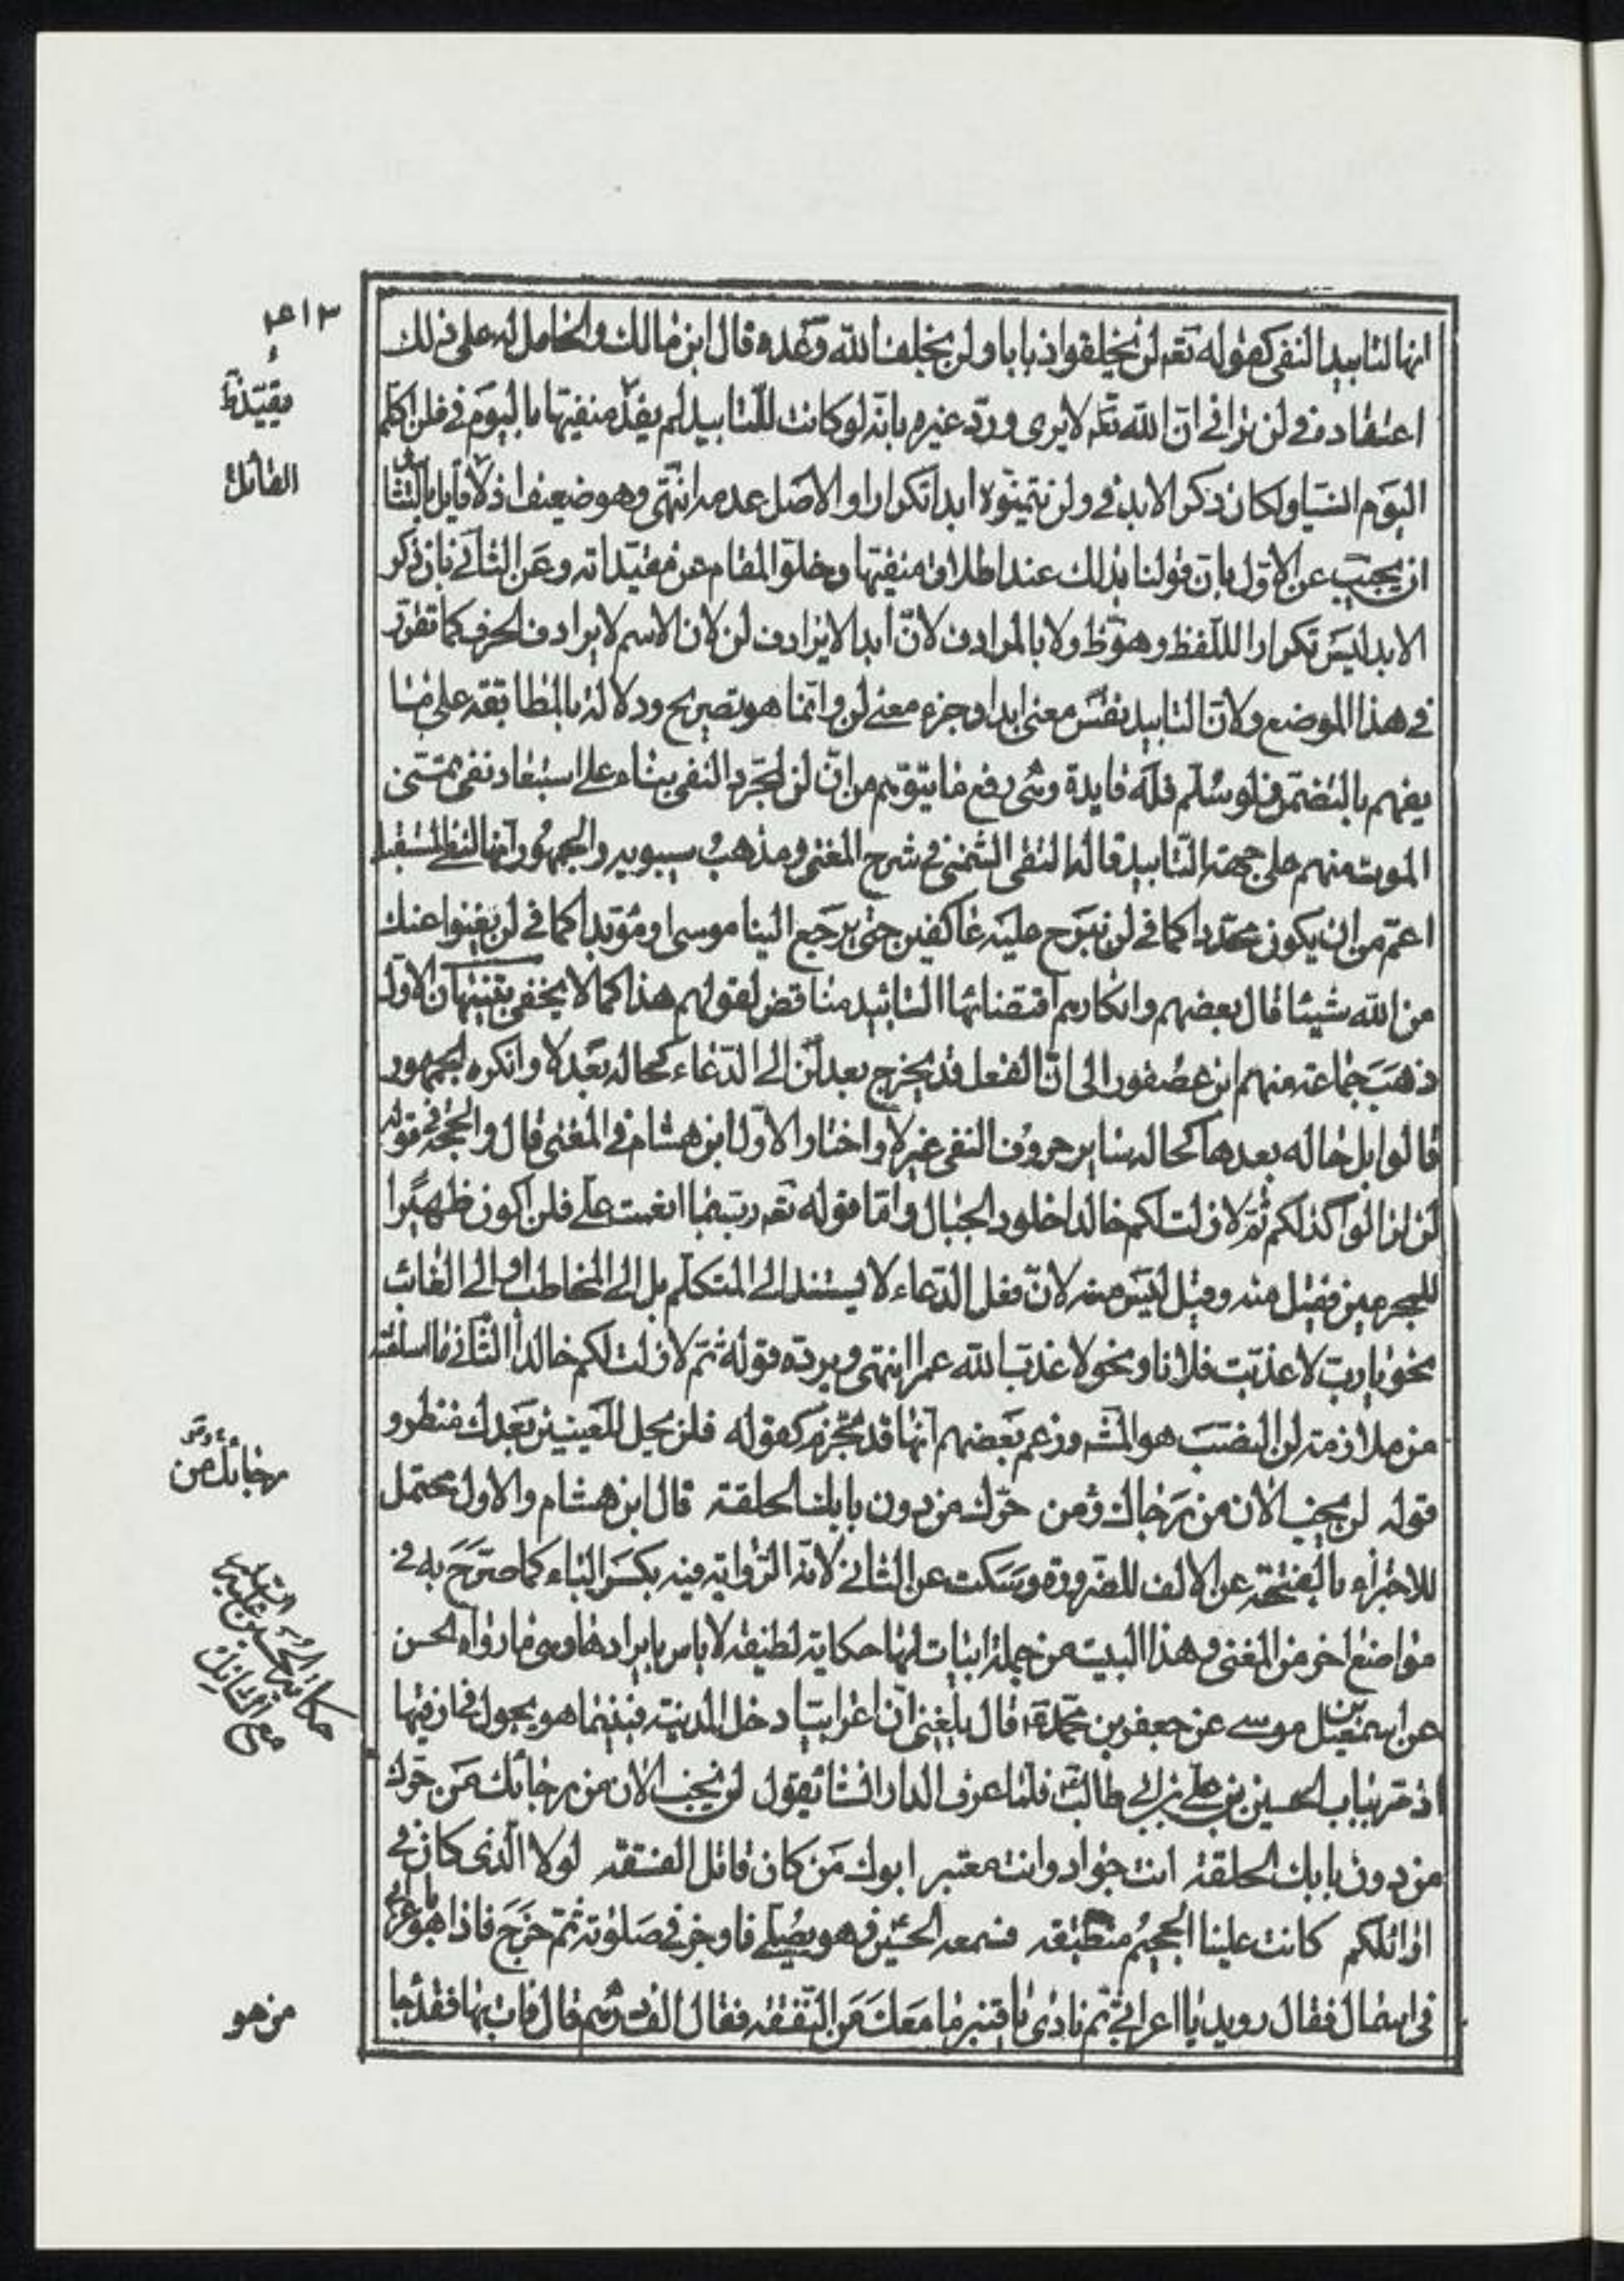 انها لتابيد النفى كقوله تعه لن يخلقوا ذبابا ولن يخلف الله وعده قال ابن مالك والحامل له على ذلك
اعتقاده فى لن ترانى انّ الله تعه لا يرى وردّ غيره بانّه لو كانت للتابيد لم يقيّد منفيها باليوم فى فلن اكلم
اليوم انسيا ولكان ذكر الابد فى ولن يتمنّوه ابدا تكرارا والاصل عدمه انتهى وهو ضعيف اذ لقايل بالتا
ان يجيب عن الاول بان قولنا بذلك عند اطلاق منفيها وخلوّ المقام عن مقيّداته وعن الثانى بان ذكر
الابد ليس تكرارا للفظ وهو ظ ولا بالمرادف لانّ ابدا لا يرادف لن لان الاسم لا يرادف الحرف كما تقرر
فى هذا الموضع ولان التابيد نفس معنى ابدا وجزء معنى لن وانما هو تصريح ودلالة بالمطابقة على ما
يفهم بالتضمن فلو سلّم فله فايدة وهى رفع ما يتوهم من انّ لن لمجرد النفى بناء على استبعاد نفى تمنى
الموت منهم على جهة التابيد قاله التقى الشمنى فى شرح المغنى ومذهب سيبويه والجمهور انها لنفى المستقبل
اعم من ان يكون محدّدا كما فى لن نبرح عليه عاكفين حتى يرجع الينا موسى او مؤبّدا كما فى لن يغنوا عنك
من الله شيئا قال بعضهم وانكارهم اقتضائها التابيد مناقض لقولهم هذا كما لا يخفى تنبيهان الاول
ذهب جماعة منهم ابن عصفور الى انّ الفعل قد يخرج بعد لن الى الدّعاء كحاله بعد لا وانكره الجمهور
قالوا بل حاله بعدها كحاله بساير حروف النفى غير لا واختار الاول ابن هشام فى المغنى قال والحجة فى قوله
لن تزالوا كذلكم ثمّ لا زلت لكم خالدا خلود الجبال وامّا قوله تعه ربّ بما انعمت علىّ فلن اكون ظهيرا
للمجرمين فقيل منه وقيل ليس منه لانّ فعل الدّعاء لا يستند الى المتكلم بل الى المخاطب او الى الغائب
نحو يا ربّ لا عذّبت فلانا ونحو لا عذّب الله عمرا انتهى ويردّه قوله ثمّ لا زلت لكم خالدا الثانى ما اسلفته
من ملازمة لن النصب هو المشه وزعم بعضهم انها قد تجزم كقوله فلن يحل للعينين بعدك منظر و
قوله لن يخب الان من رجائك من حرّك من دون بابك الحلقة قال ابن هشام والاول محتمل
للاجتزاء بالفتحة عن الالف للضرورة وسكت عن الثانى لانه الرّواية فيه بكسر الباء كما صرّح به فى
مواضع اخر من المغنى وهذا البيت من جملة ابيات لها حكاية لطيفة لا باس بايرادها وهى ما رواه الحسن
عن اسمعيل بن موسى عن جعفر بن محمّد قال بلغنى انّ اعرابيّا دخل المدينة فبينما هو يجول فى ازقتها
اذ مرّ بباب الحسين بن على بن ابى طالب فلما عرف الدار انشا يقول لن يخب الان من رجائك من حرّك
من دون بابك الحلقة انت جواد وانت معتبر ابوك من كان قاتل الفسقة لولا الذى كان فى
اوائلكم كانت علينا الجحيم منطبقة فسمعه الحسين وهو يصلّى فاوجز فى صلوته ثمّ خرج فاذا هو باعرابى
فى اسمال فقال رويد يا اعرابىّ ثم نادى يا قنبر ما معك من النفقة فقال الف درهم قال فات بها فقد جا
٤١٣
يقيّد ظ
القائل
رجائك من
حكاية الحسين بن على
مع السائل
من هو